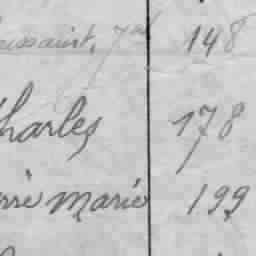 aussaint, 148
Charles 178
erre Marie 199